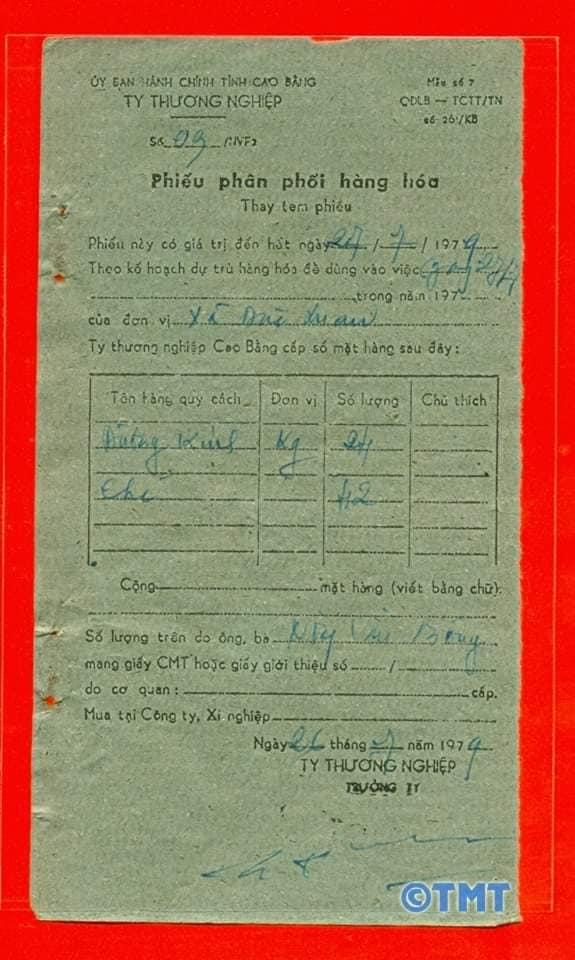 ỦY BAN HÀNH CHÍNH TỈNH CAO BẰNG
TY THƯƠNG NGHIỆP
Số 09 /NVF2
Mẫu số 7
QDLB — TCTT/TN
số 26/KB
Phiếu phân phối hàng hóa
Thay tem phiếu
Phiếu này có giá trị đến hết ngày 27 / 7 / 1979
Theo kế hoạch dự trù hàng hóa để dùng vào việc 27/7
trong năm 197
của đơn vị Xã
Ty thương nghiệp Cao Bằng cấp số mặt hàng sau đây:
Tên hàng quy cách Đơn vị Số lượng Chú thích
Đường Kính Kg 24
Chè 42
Cộng mặt hàng (viết bằng chữ):
Số lượng trên do ông, bà
mang giấy CMT hoặc giấy giới thiệu số /
do cơ quan: cấp.
Mua tại Công ty, Xí nghiệp
Ngày 26 tháng 7 năm 1979
TY THƯƠNG NGHIỆP
TRƯỞNG TY
©TMT